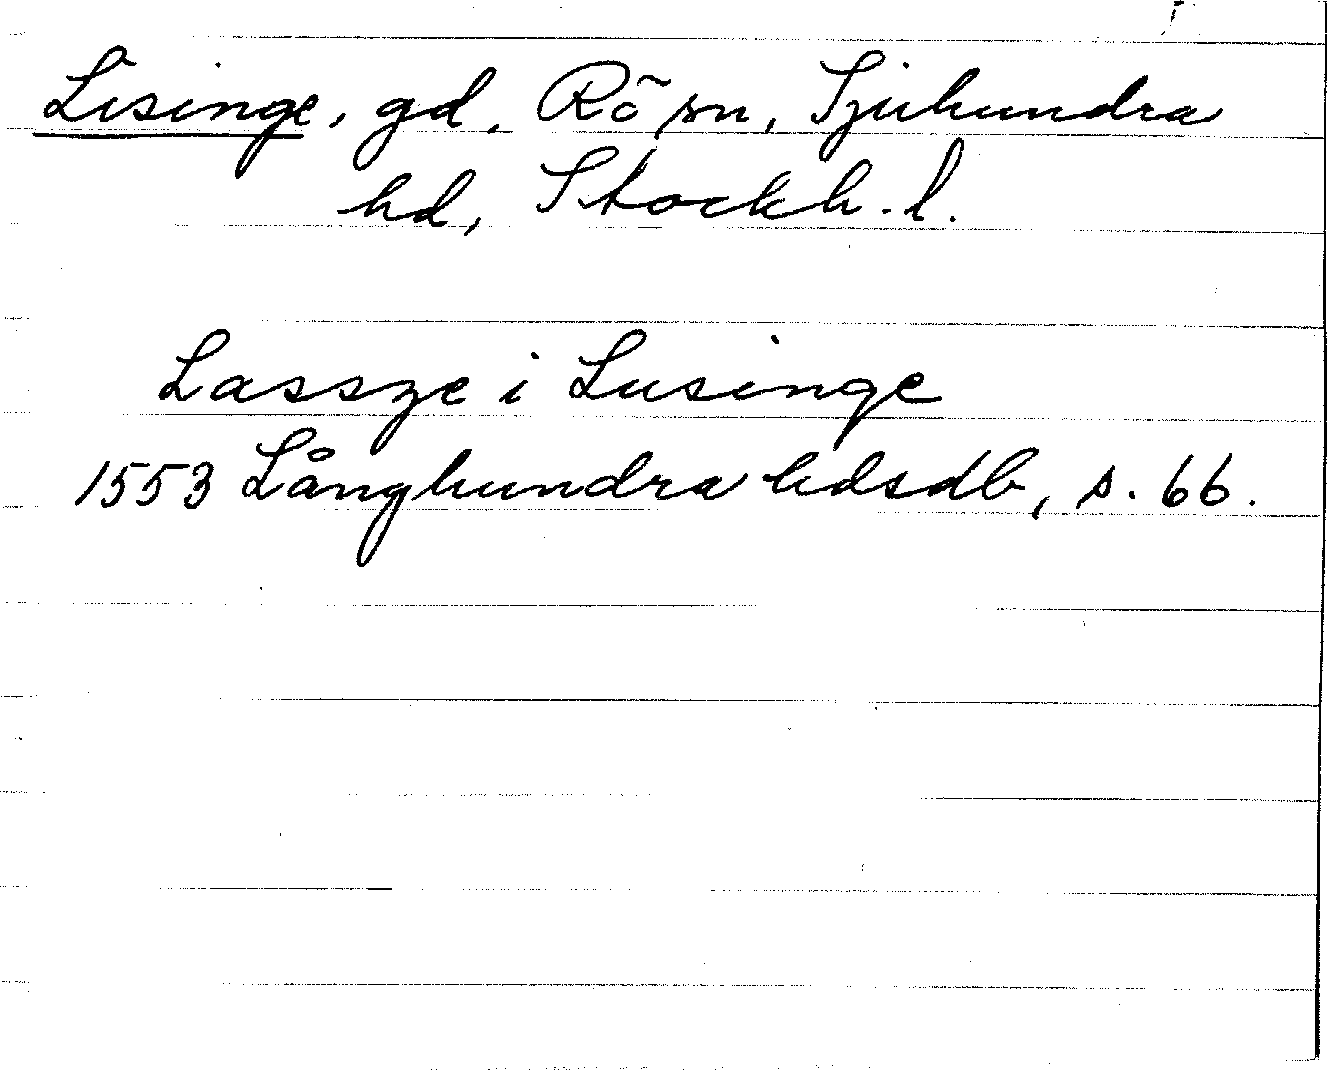 Lisinge, gd, Rö sn, Sjuhundra
hd, Stockh. l.
Lassze i Lusinge
1553 Långhundra hdsdb, s. 66.